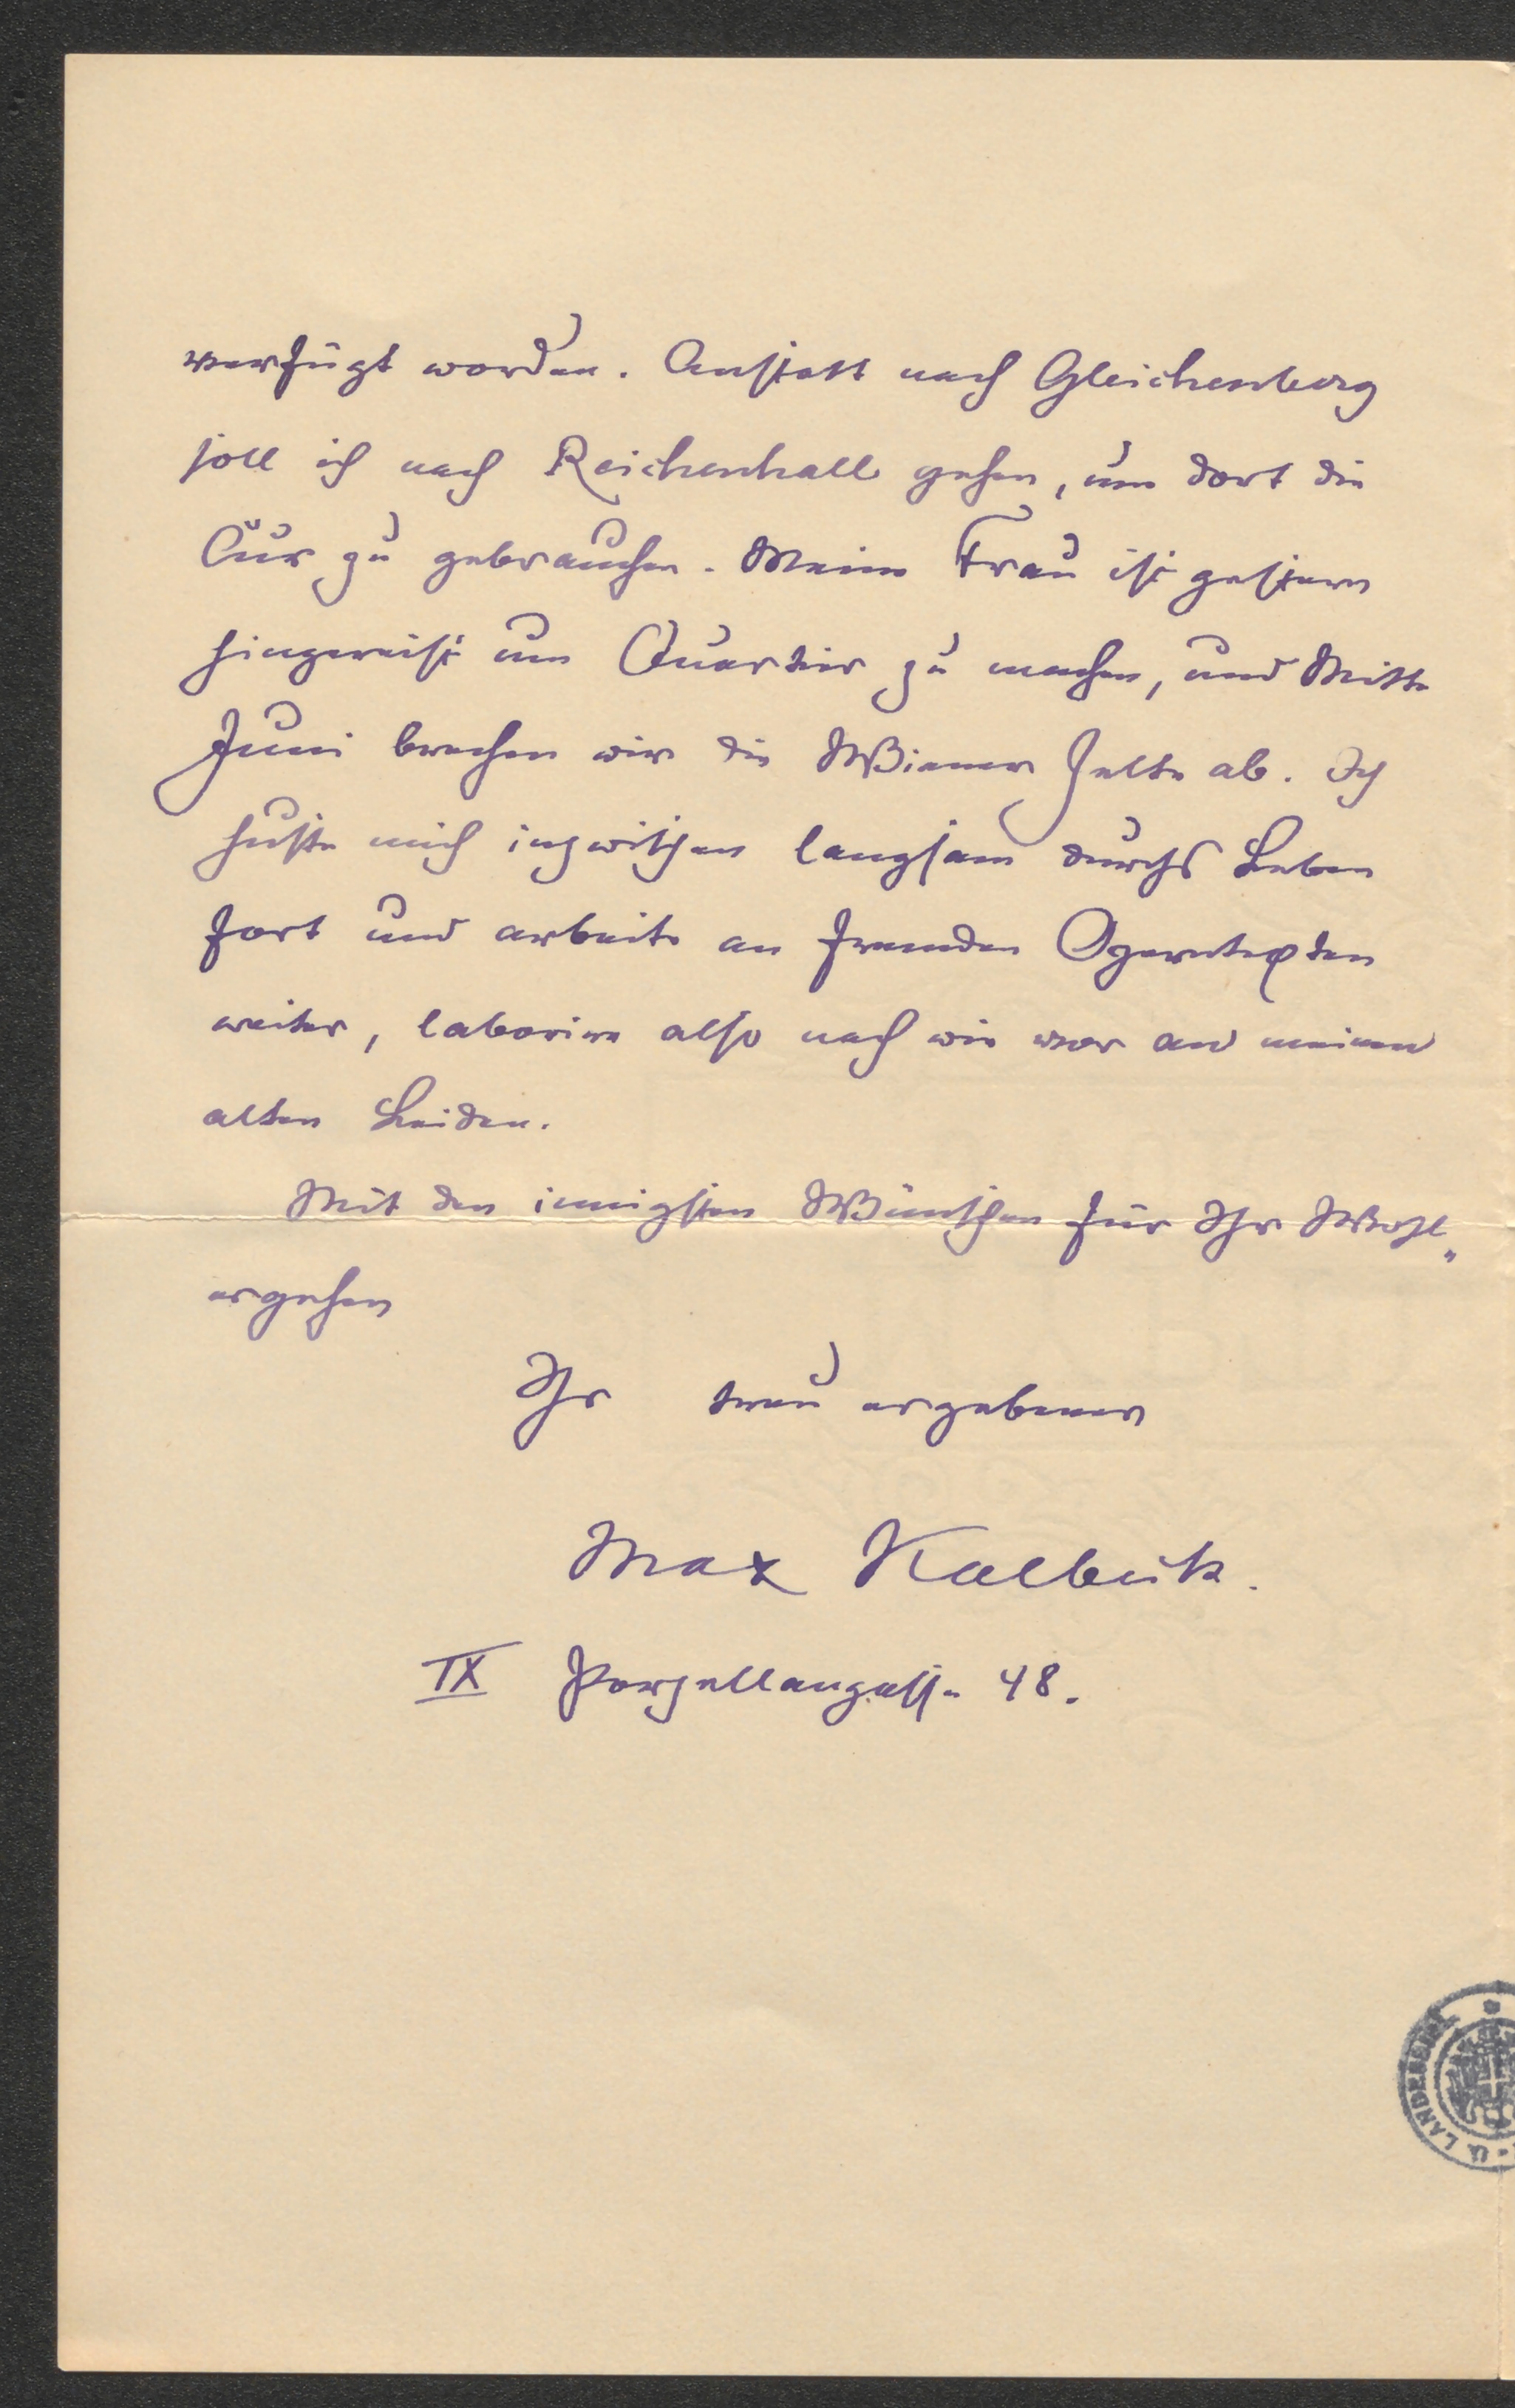 verfügt worden. Anstatt nach Gleichenberg
soll ich nach Reichenhall gehen, um dort die
Cur zu gebrauchen. Meine Frau ist gestern
hingereist um Quartier zu machen, und Mitte
Juni brechen wir die Wiener Zelte ab. Ich
huste mich inzwischen langsam durchs Leben
fort und arbeite an fremden Operntexten
weiter, laborire also nach wie vor an meinen
alten Leiden.
Mit den innigsten Wünschen für Ihr Wohl„
ergehen
Ihr treu ergebener
Max Kalbeck.
IX Porzellangasse 48.